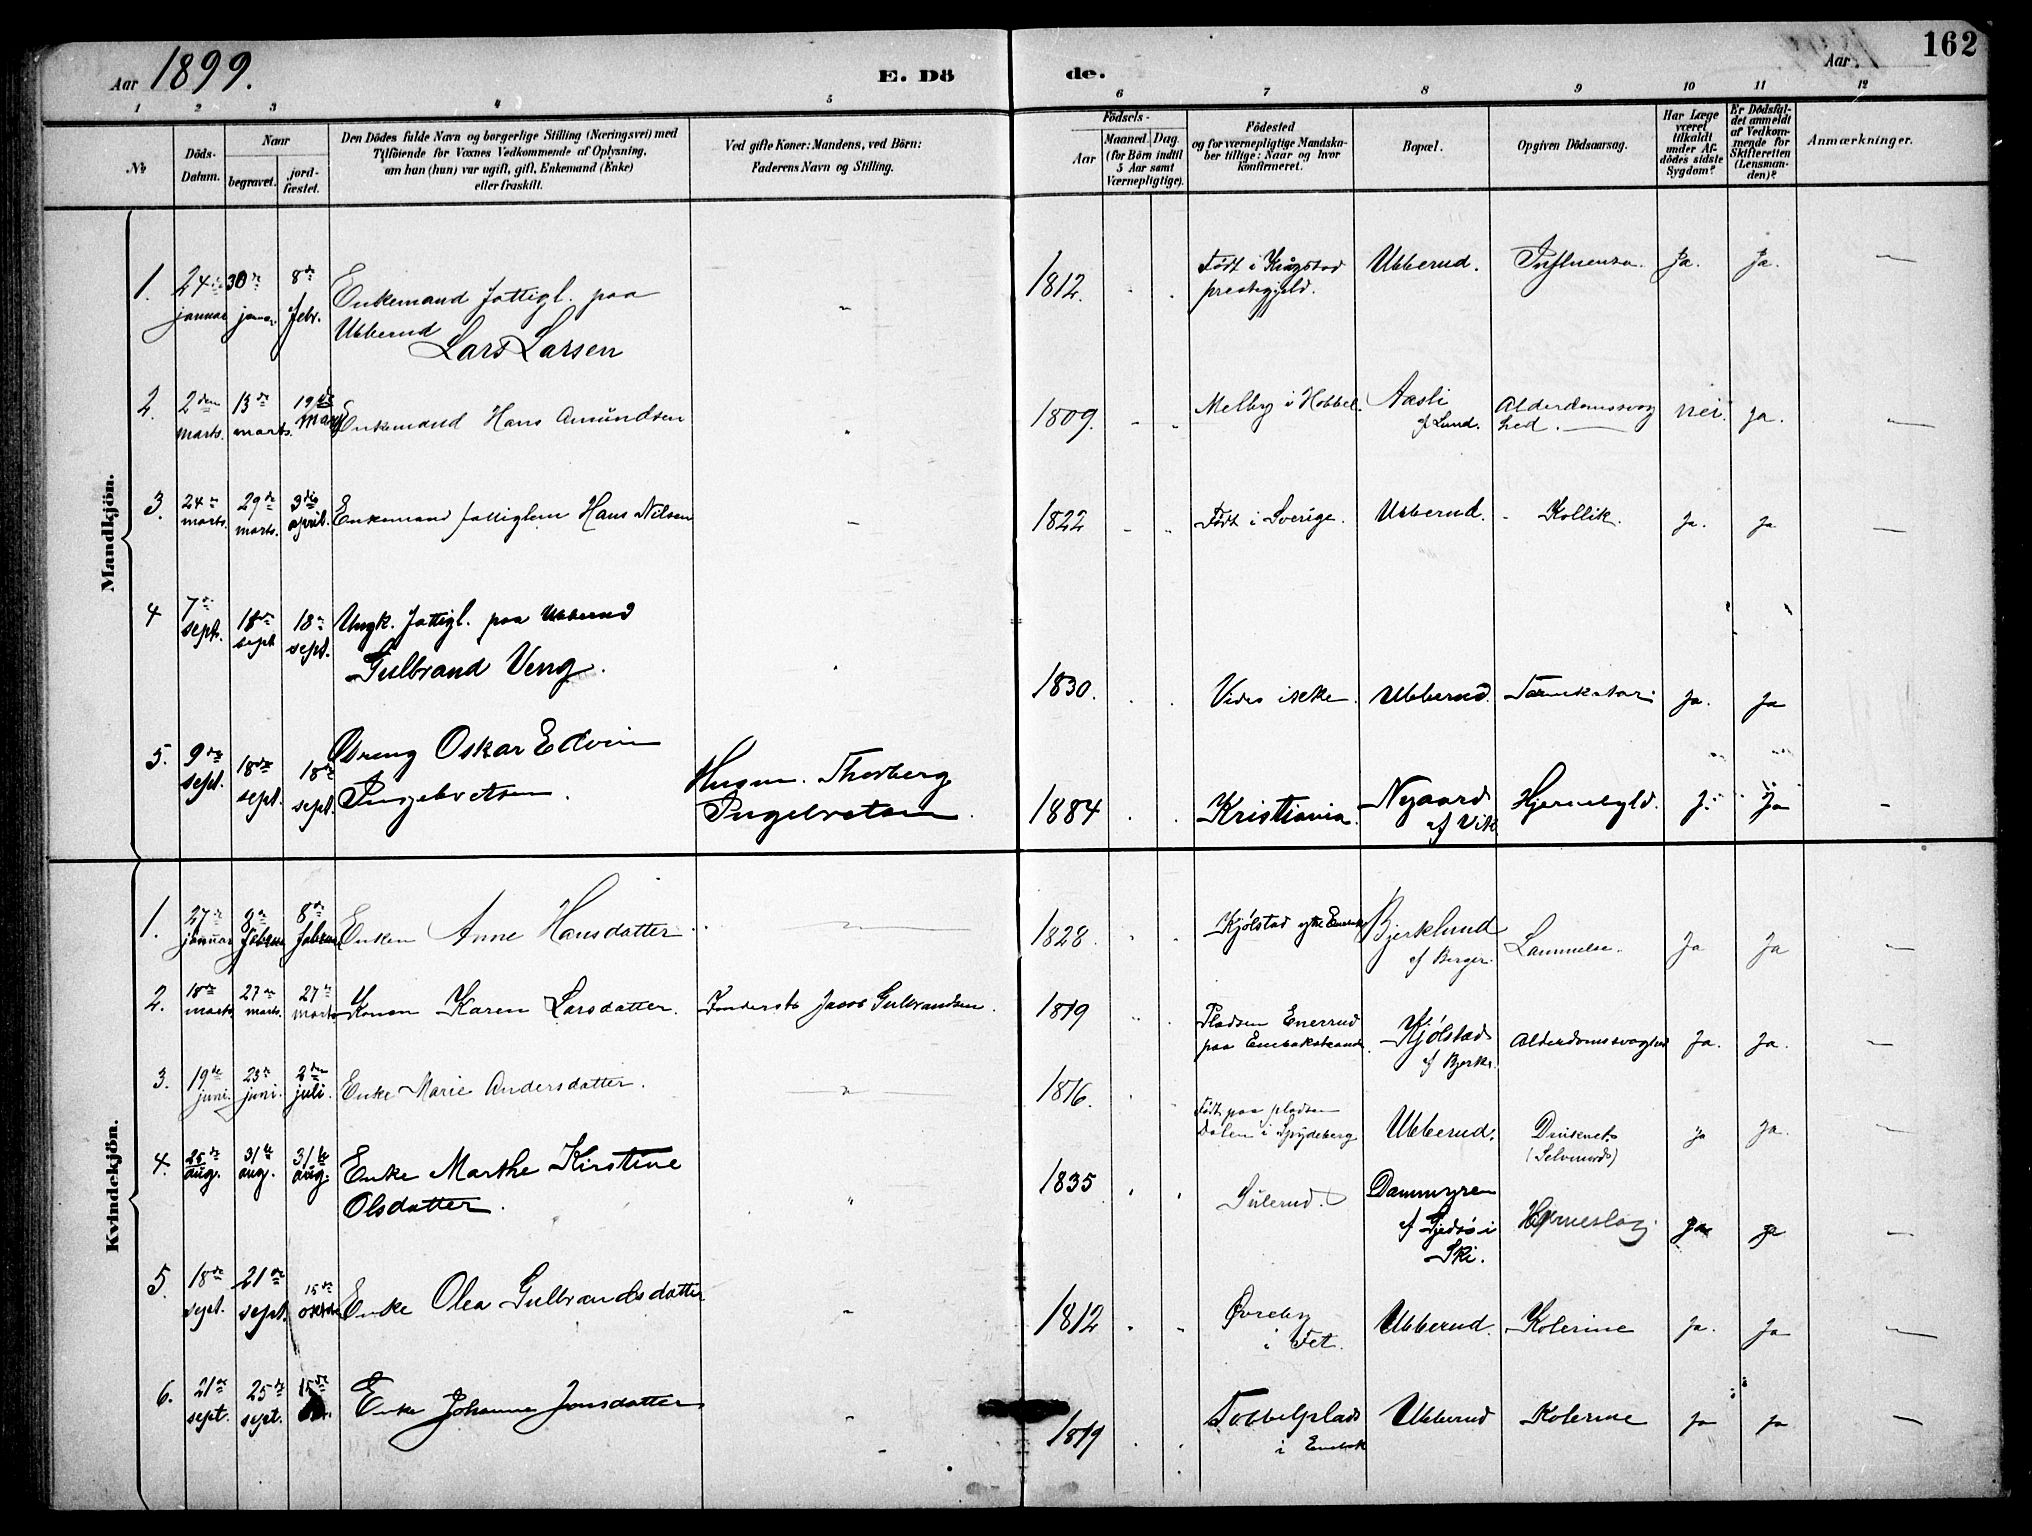 Aar 1899.
E. Dö
de.
Aar
162
1 2 3 4 5 6 7 8 9 10 11 12
No
Döds-Datum.
Naar
begravet.
jord-fæstet.
Den Dödes fulde Navn og borgerlige Stilling (Næringsvei) med
Tilföiende for Voxnes Vedkommende af Oplysning,
om han (hun) var ugift, gift, Enkemand (Enke)
eller fraskilt.
Ved gifte Koner: Mandens, ved Börn:
Faderens Navn og Stilling.
Födsels-
Aar
Maaned. Dag.
(for Börn indtil
5 Aar samt
Værnepligtige).
Födested
og for værnepligtige Mandska-
ber tillige: Naar og hvor
konfirmeret.
Bopæl.
Opgiven Dödsaarsag.
Har Læge
været
tilkaldt
under Af-
dödes sidste
Sygdom?
Er Dödsfal-
det anmeldt
af Vedkom-
mende for
Skifteretten
(Lensman-
den)?
Anmærkninger.
Mandkjön.
1. 24 januar 30 januar 8de febr. Enkemand fattigl. paa
Ubberud
Lars Larsen
1812. Født i Krågstad
prestegjeld. Ubberud. Influensa. Ja. Ja.
2. 2den marts. 13de marts. 19de marts Enkemand Hans Amundsen
1809. Melby i Hobbel. Aasli
af Lund. Alderdomssvag
hed. nei. ja.
3. 24de marts. 29de marts. 3die april. Enkemand fattiglem Hans Nilsen
1822 Født i Sverige. Ubberud. Kollik. ja. ja
4 7de sept. 18de sept 18de sept. Ungk. fattigl. paa Ubberud
Gulbrand Veng.
1830. Vides ikke. Ubberud. ja. ja
5. 9de sept. 18de sept. 18de sept. Dreng Oskar Edvin
Ingebretsen.
Husm. Thorberg
Ingebretsen.
1884 Kristiania. Nygaard
af Vik Hjernebyld. J. Ja
Kvindekjön.
1. 27de januar 8de 8de Enken Anne Hansdatter
1828. Kjølstad Bjerklund
af Berger. Lammelse. Ja Ja
2. 18de marts. 27de marts. 27de marts Konen Karen Larsdatter. Inderst Jacob Gulbrandsen.
1819 Pladsen Enerrud
paa Enebakstrand. Kjølstad
af Bjerke. Alderdomssvaghed Ja. Ja.
3. 19de juni. 23de juni. 2den juli. Enke Marie Andersdatter.
1816. Født paa pladsen
Dalen i Spydeberg Ubberud. Druknet.
(Selvmord) ja Ja.
4. 25de aug. 31te aug. 31te aug. Enke Marthe Kirstine
Olsdatter.
1835 Gulerud. Dammyren
af
Ski. Hjerneslag. ja ja
5. 18de sept. 21de sept. 15de Enke Olea Gulbrandsdatter
1812 Øvreby
i Fet. Ubberud. Kolerine ja. Ja
6. 21de sept. 25de sept. 15de Enke Johanne Jonsdatter
1819 Tobbelplads
i Enebak Ubberud Kolerine ja ja